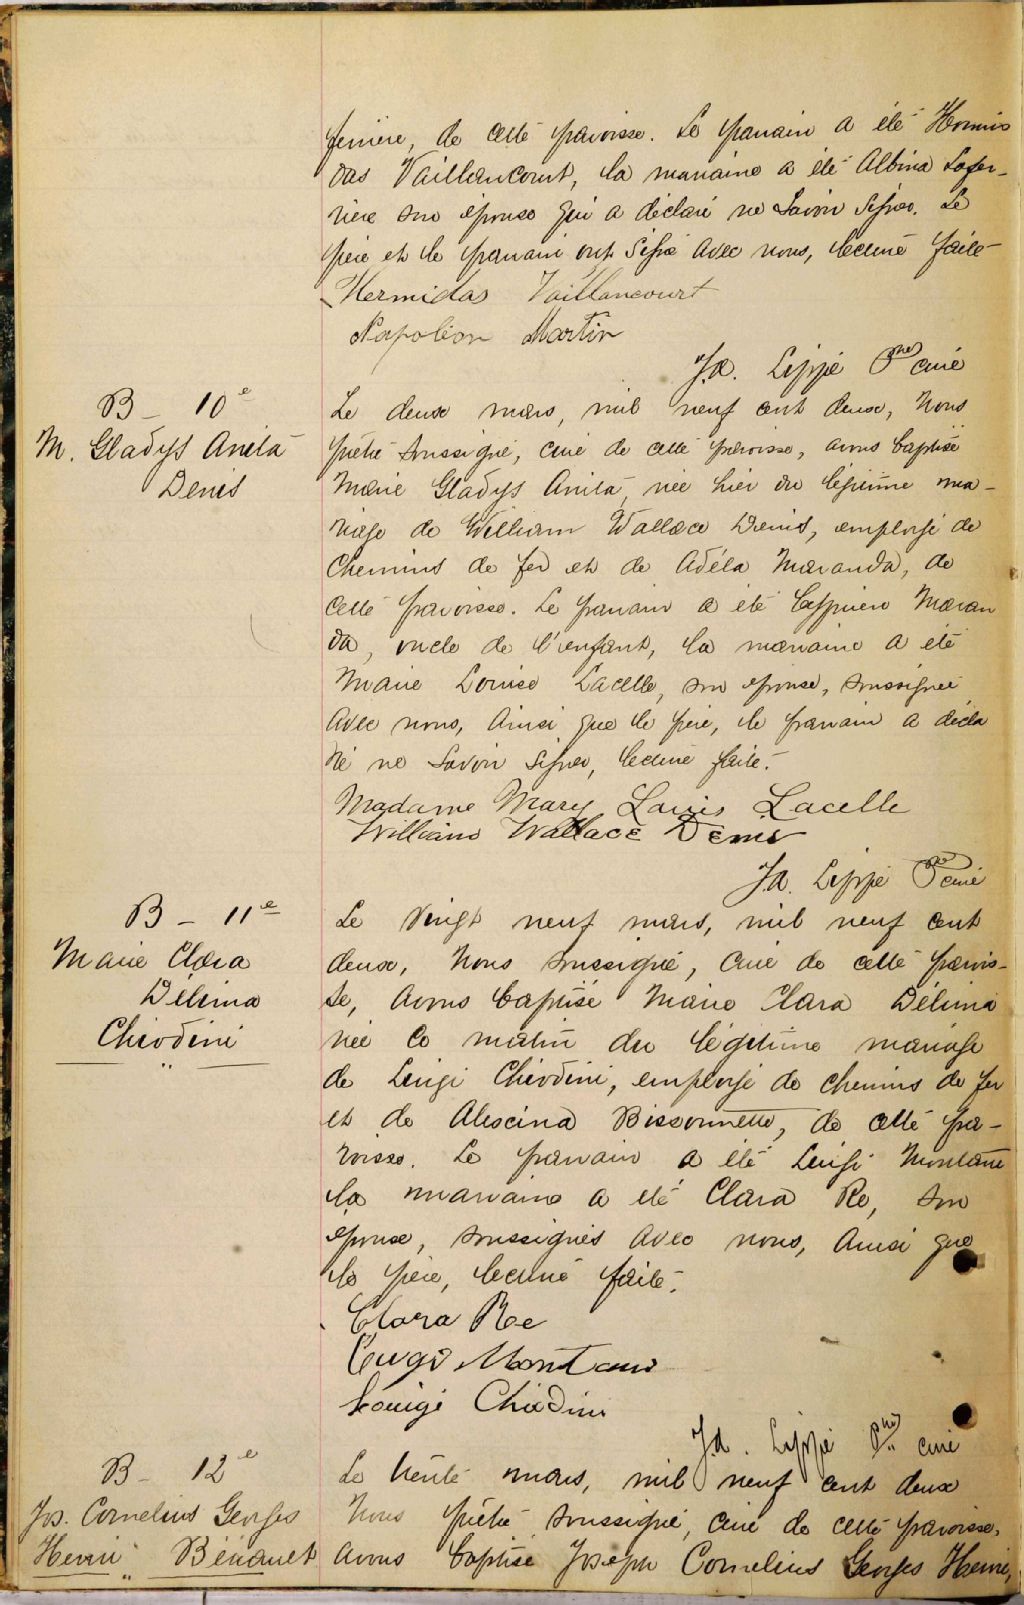 ferrière, de cette paroisse. Le parrain a été Hormis
das Vaillancourt, la marraine a été Albina Lafer-
rière son épouse qui a déclaré ne savoir signer. Le
père et le parrain ont signé avec nous, lecture faite
Hermidas Vaillancourt
Napoléon Martin
J.A. Lippé Ptre curé
B - 10e
M. Gladys Anita
Denis
Le deux mars, mil neuf cent deux, Nous
prêtre soussigné, curé de cette paroisse, avons baptisé
Marie Gladys Anita, née hier du légitime ma-
riage de William Wallace Denis, employé de
chemins de fer et de Adéla Maranda, de
cette paroisse. Le parrain a été Maran
da, oncle de l'enfant, la marraine a été
Marie Louise Lacelle, son épouse, soussignée
avec nous, ainsi que le père, le parrain a décla
ré ne savoir signer, lecture faite.
Madame Mary Louis Lacelle
William Wallace Denis
J.A. Lippé Ptre curé
B - 11e
Marie Clara
Délima
Chiodini
Le vingt neuf mars, mil neuf cent
deux, Nous soussigné, curé de cette parois-
se, avons baptisé Marie Clara Délima
née ce matin du légitime mariage
de Luigi Chiodini, employé de chemins de fer
et de Alexina Bissonnette, de cette pa-
roisse. Le parrain a été Luigi Montani
la marraine a été Clara Re, son
épouse, soussignés avec nous, ainsi que
le père, lecture faite.
Clara Re
Luigi Montani
Louigi Chiodini
J.A. Lippé Ptre curé
B - 12e
Jos. Cornelius Georges
Henri Bénard
Le trente mars, mil neuf cent deux
Nous prêtre soussigné, curé de cette paroisse,
avons baptisé Joseph Cornelius Georges Henri,